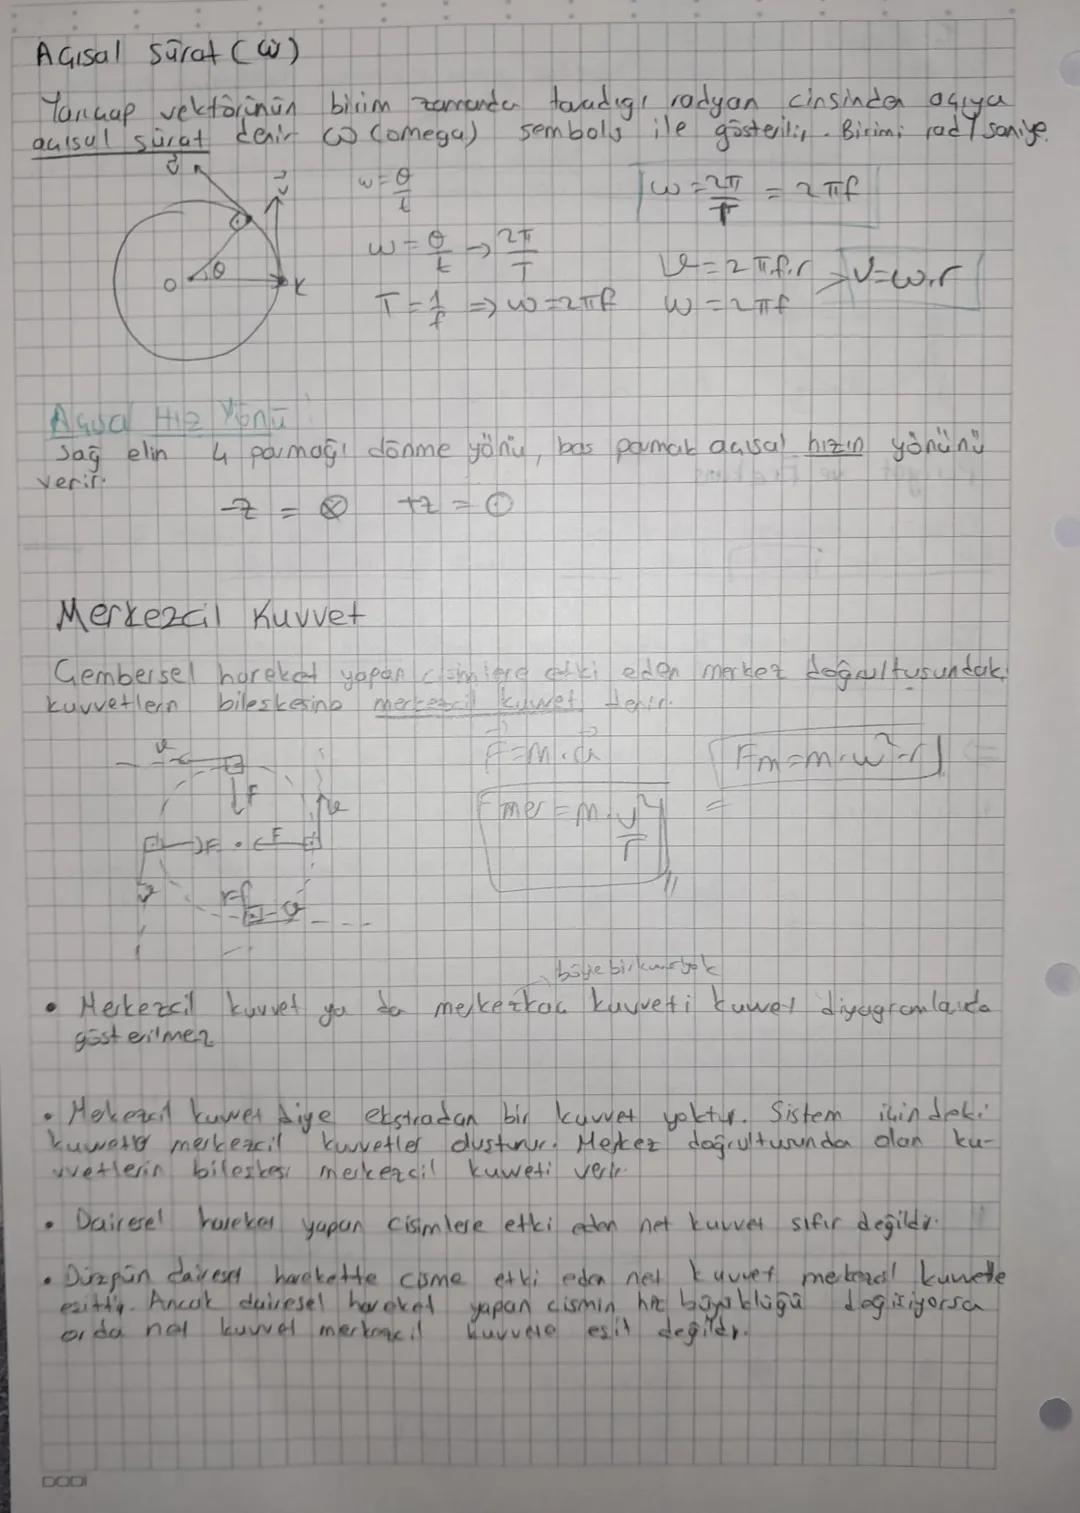 Açısal Sürat (ω)
Yarıçap vektörünün birim zamanda taradığı radyan cinsinden açıya
açısal sürat denir ω (omega) sembolü ile gösterilir. Birimi rad/saniye.
ω = θ/t
ω = 2π/T = 2πf
ω = θ/t → 2π/T
T = 1/f ⇒ ω = 2πf
V = 2π.f.r
ω = 2πf
> V = ω.r
O θ K
Açısal Hız Yönü
Sağ elin 4 parmağı dönme yönü, baş parmak açısal hızın yönünü
verir.
-z = ⊗ +z = ⊙
Merkezcil Kuvvet
Çembersel hareket yapan cisimlere etki eden merkez doğrultusundaki
kuvvetlerin bileşkesine merkezcil kuvvet denir.
F = m.a
Fm = m.ω².r
Fmer = m.v²/r
=
böyle bir kuvvet yok
• Merkezcil kuvvet ya da merkezkaç kuvveti kuvvet diyagramlarda
gösterilmez
• Merkezcil kuvvet diye ekstradan bir kuvvet yoktur. Sistem içindeki
kuvvetler merkezcil kuvvetler oluşturur. Merkez doğrultusunda olan ku-
vvetlerin bileşkesi merkezcil kuvveti verir.
• Dairesel hareket yapan cisimlere etki eden net kuvvet sıfır değildir.
• Düzgün dairesel harekette cisme etki eden net kuvvet merkezcil kuvvete
eşittir. Ancak dairesel hareket yapan cismin hız büyüklüğü değişiyorsa
orda net kuvvet merkezcil kuvvete eşit değildir.
DODI